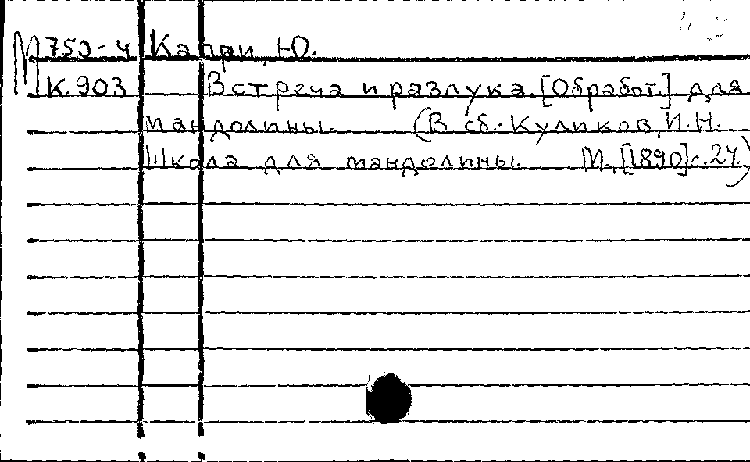 М 750-4 Капри, Ю.
К.903 Встреча и разлука. [Обработ.] для
мандолины. (В сб.: Куликов, И.Н.
Школа для мандолины. М., [1890] с.24)